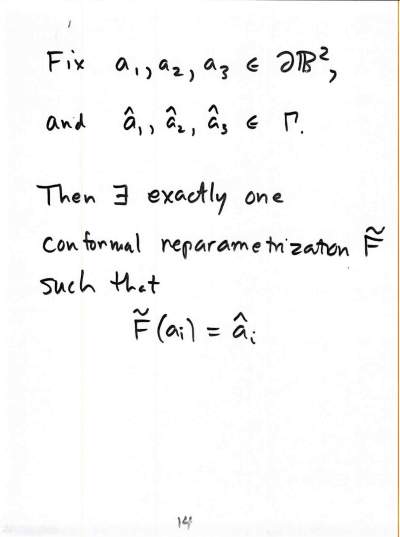 Fix a₁, a₂, a₃ ∈ ∂𝔹²,
and â₁, â₂, â₃ ∈ Γ.
Then ∃ exactly one
conformal reparametrization F̃
such that
F̃(aᵢ) = âᵢ
14